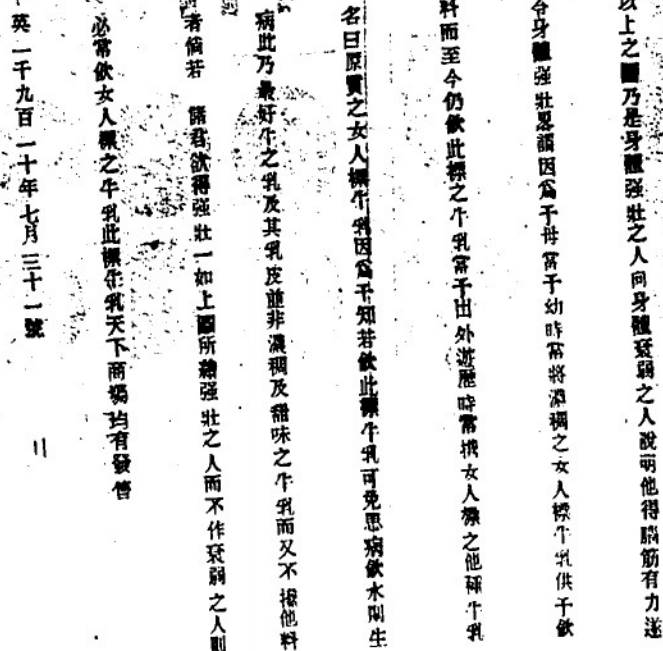 以上之圖乃是身體强壯之人向身體衰弱之人說明他得腦筋有力遂
身體强壯畧謂因爲予母當予幼時常將濃稠之女人標牛乳供予飲
料而至今仍飲此標之牛乳當予出外遊歷時常携女人標之他種牛乳
名曰原質之女人標牛乳因爲予知若飲此標牛乳可免患病飲水則生
病此乃最好牛之乳及其乳皮並非濃稠及甜味之牛乳而又不攙他料
者倘若 諸君欲得强壯一如上圖所繪强壯之人而不作衰弱之人則
必常飲女人標之牛乳此標牛乳天下商塲均有發售
英一千九百一十年七月三十一號